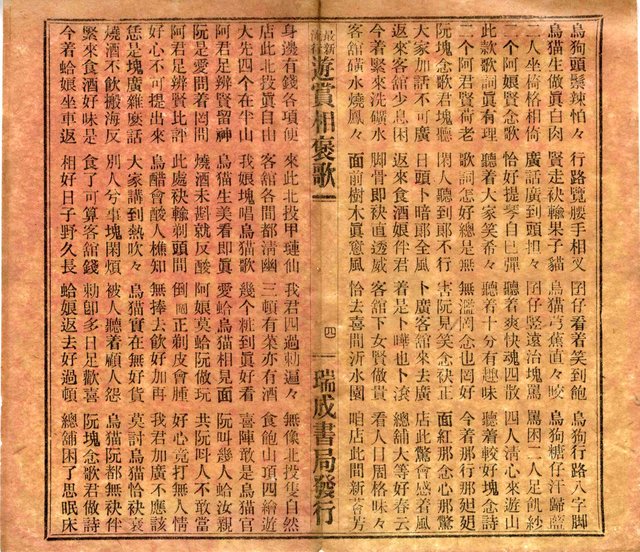 烏狗頭鬃辣怕々 行路覽腰手相叉 囝仔看着笑到飽 烏狗行路八字脚
烏猫生做眞白肉 賢走袂輸果子貓 烏猫弓蕉直々咬 烏狗糖仔汗歸籃
二人坐椅格相倚 廣話廣到頭担々 囝仔竪遠治塊罵 罵困二人足飢紗
二个阿娘賢念歌 恰好提琴自巳彈 聽着爽快魂四散 四人清心來遊山
此款歌詞眞有理 聽着大家笑希々 聽着十分有趣味 聽着較好塊念詩
二个阿君賢荷老 歌詞怎好總是無 無濫罔念也罔好 今着那行那廻廻
阮塊念歌君塊聽 閑人聽到郞不行 害阮見笑念袂正 面紅那念心那驚
大家加話不可廣 日頭卜暗郞全風 卜廣客舘來去廣 店此驚會感着風
返來客舘少息困 返來食酒娘伴君 着是卜嘩也卜滾 總舖大等好春云
今着緊來洗礦水 脚骨卽袂直透威 客舘下女賢做貴 看人日周格味々
客舘礦水燒鳳々 面前樹木眞意風 恰去喜聞沂水園 咱店此間新薈芳
最新流行 遊賞相褒歌 一 四 一 瑞成書局發行
身邊有錢各項便 來此北投甲璉仙 我君四過勅遍々 無像北投隻自然
店此北投眞自由 客舘各間都清幽 三頓有菜亦有酒 食飽山頂四繪遊
大先四个在半山 我娘愚唱烏猫歌 幾个粧到眞好看 喜陣敢是烏猫官
阿君足辨賢留神 烏猫生美看卽眞 愛蛤烏猫相見面 阮叫幾人蛤汝親
阮是愛問着罔問 燒酒未斟就反酸 阿娘莫蛤阮做玩 共阮叫人不敢當
阿君足辨賢比評 此處袂輸剃頭間 倒正剃皮會腫 好心竟打無人情
好心不可提出來 烏醋會酸人樵知 無捧去飲好加再 我君加廣不應該
恁是塊廣雞窽話 大家講到熱吹々 烏猫實在無好貨 莫討烏猫恰袂衰
燒酒不飲搬海反 別人兮事塊閑煩 被人聽着顧人怨 烏猫阮都無袂伴
緊來食酒好味是 食了可算客舘錢 勅卽多日足歡喜 阮塊念歌君做詩
今着蛤娘坐車返 相好日子野久長 蛤娘返去好過頓 總舖困了思眠床